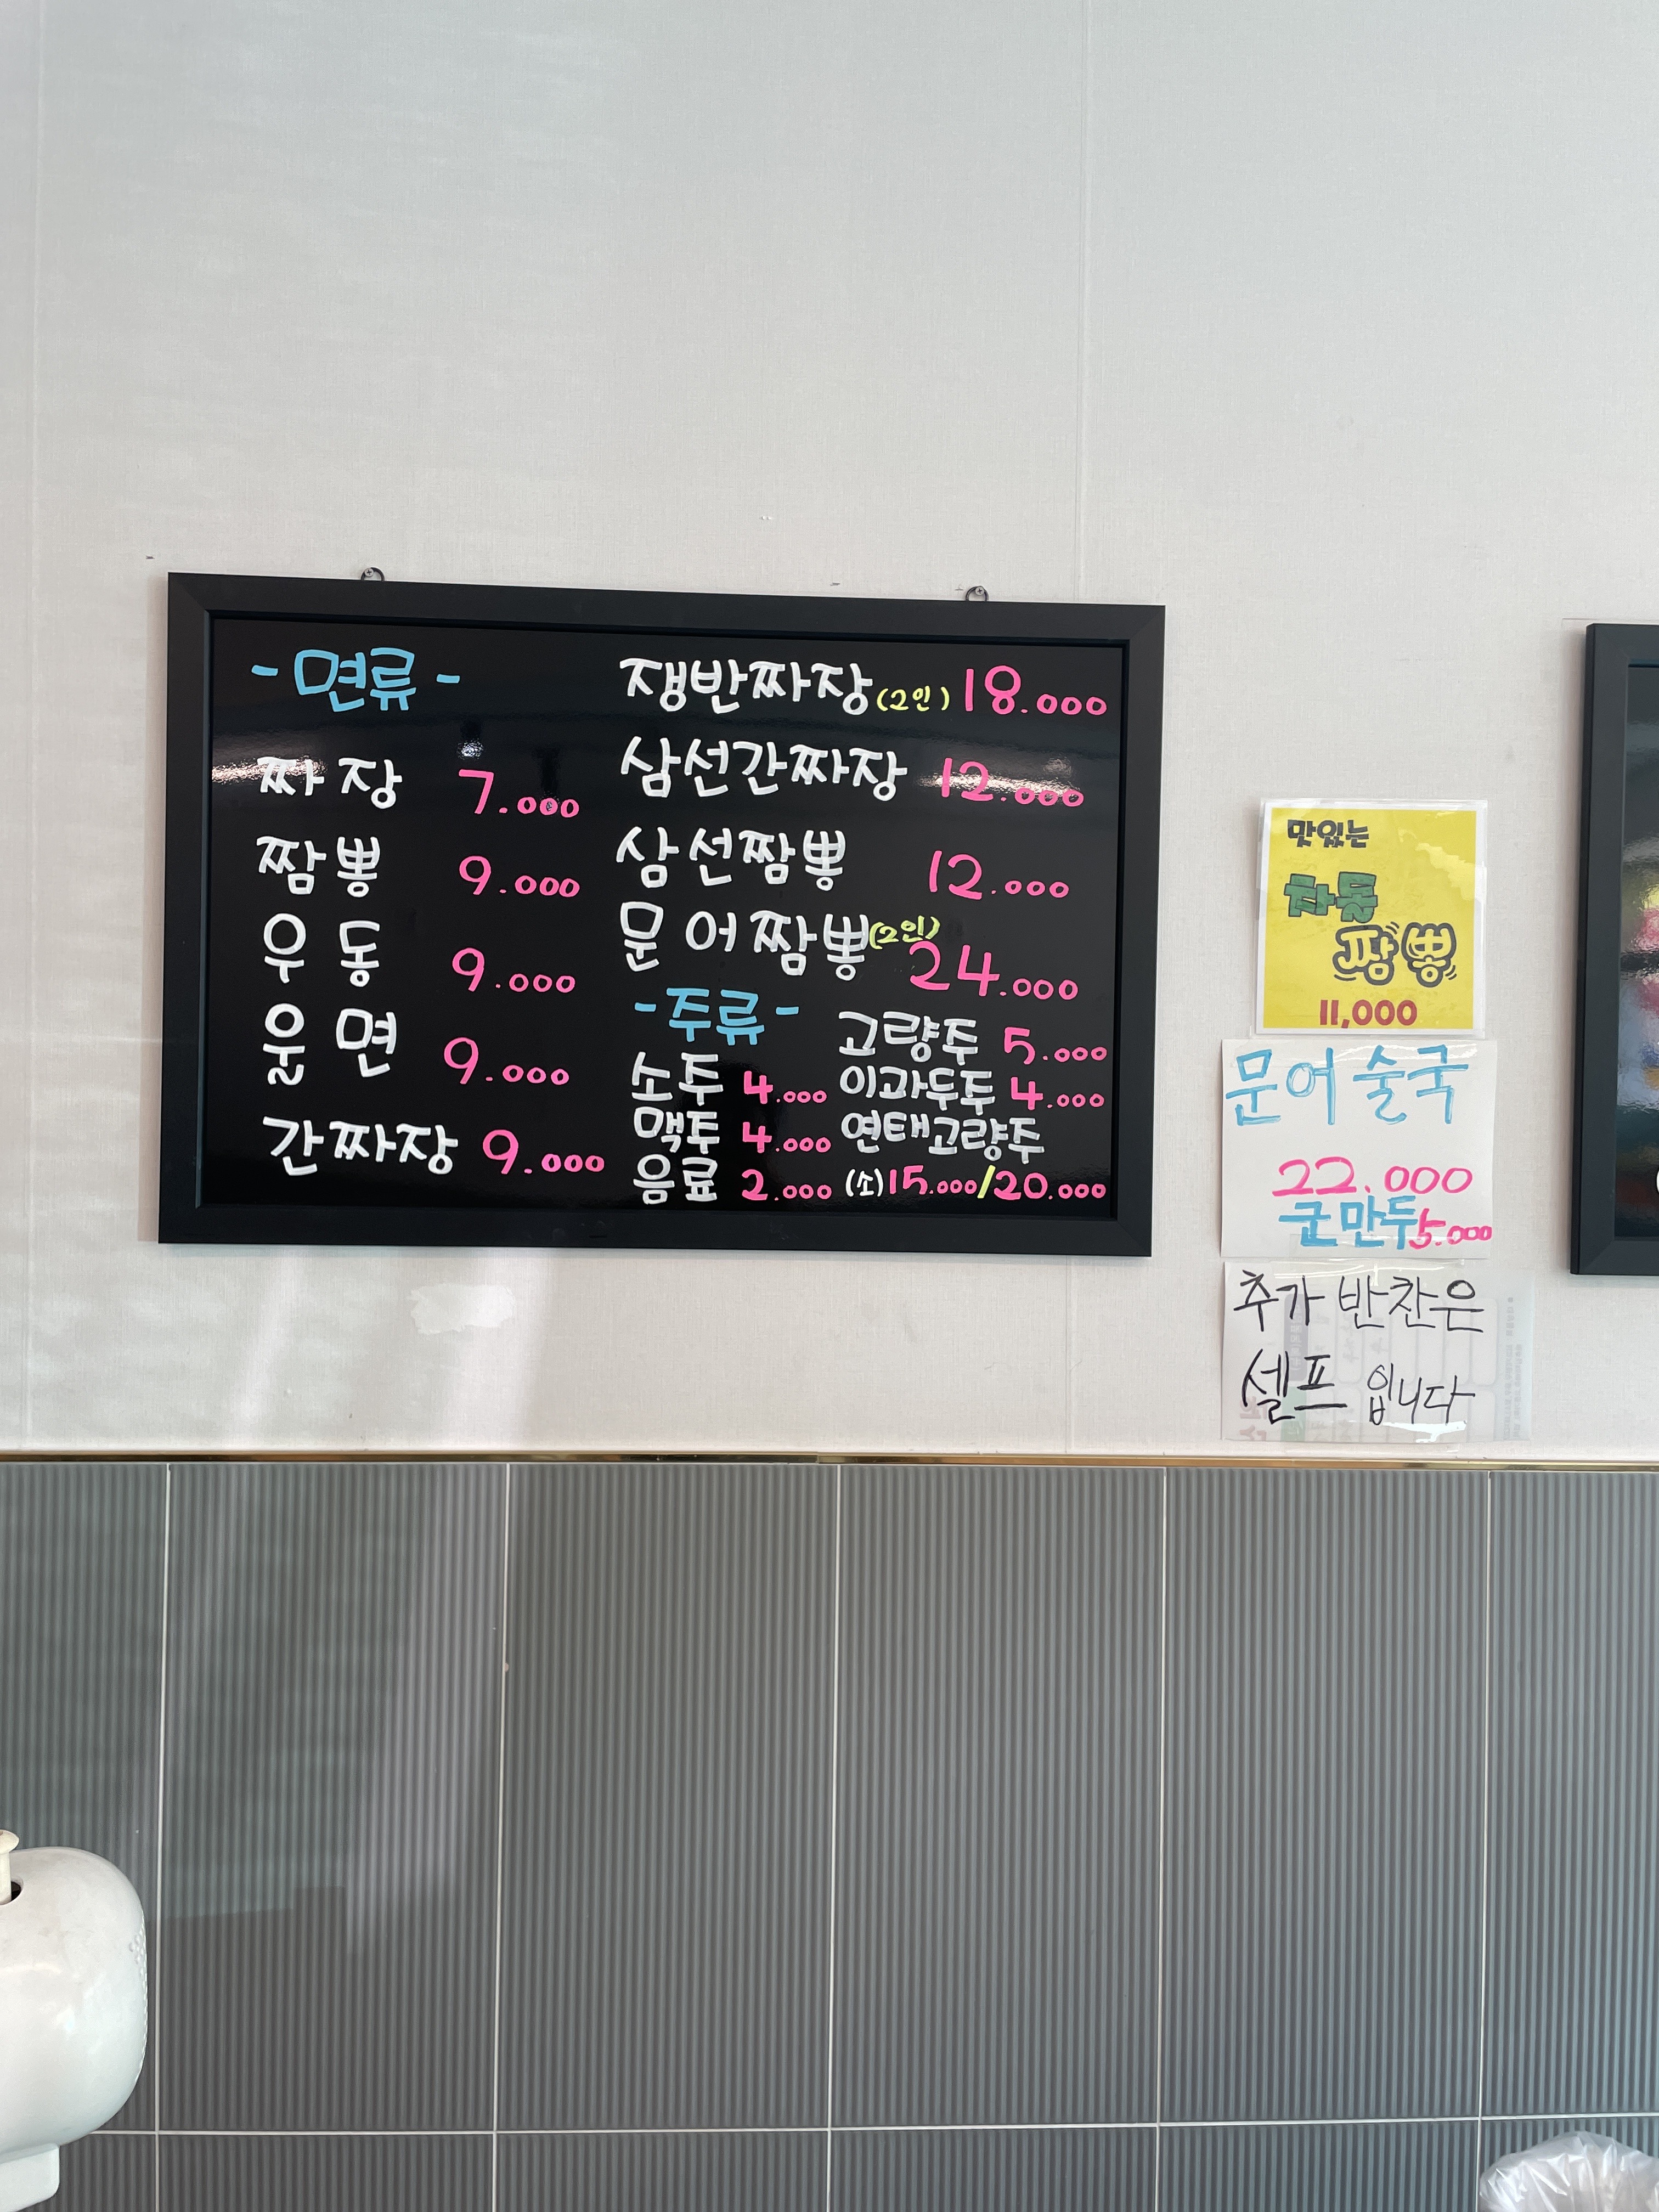 - 면류 -
짜장 7.000
짬뽕 9.000
우동 9.000
울면 9.000
간짜장 9.000
쟁반짜장(2인) 18.000
삼선간짜장 12.000
삼선짬뽕 12.000
문어짬뽕(2인) 24.000
- 주류 -
소주 4.000
맥주 4.000
음료 2.000
고량주 5.000
이과두주 4.000
연태고량주
(소)15.000/20.000
맛있는
차돌
짬뽕
11,000
문어 술국
22.000
군만두 5.000
추가 반찬은
셀프 입니다